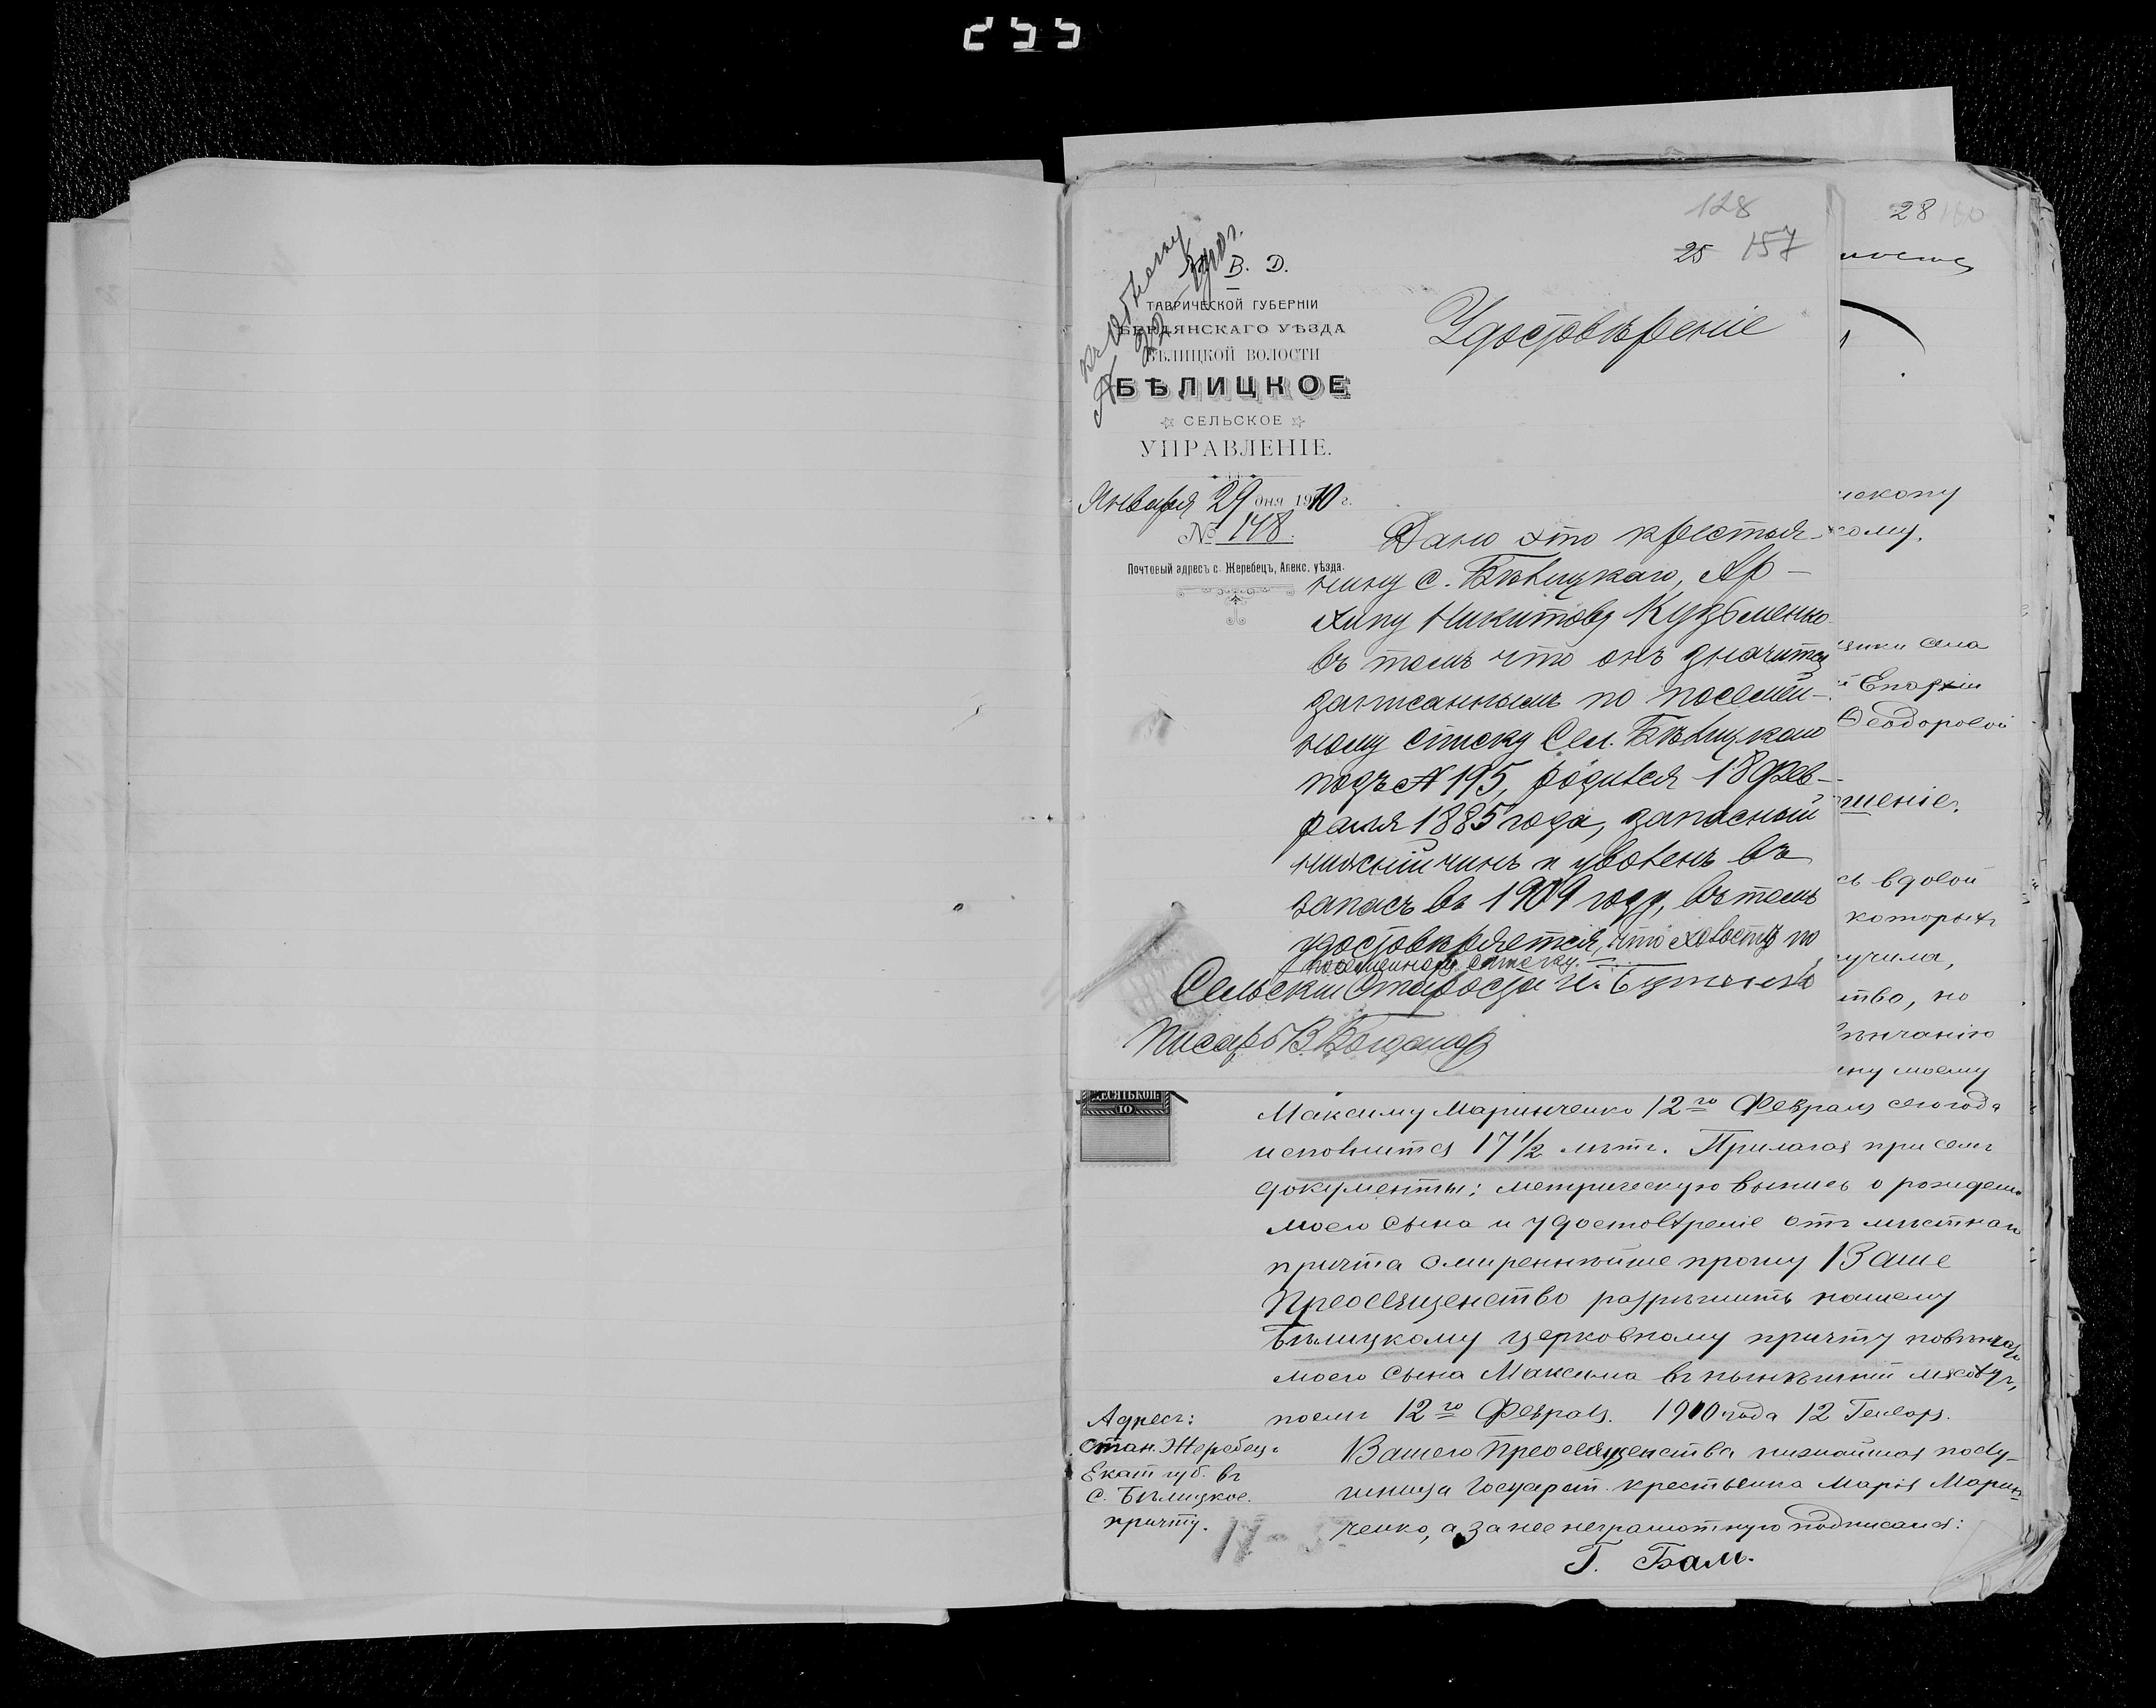 255
128
25 157
28
къ обыску
№ 22 1910 г.
М. В. Д.
ТАВРИЧЕСКОЙ ГУБЕРНІИ
БЕРДЯНСКАГО УѢЗДА
БѢЛИЦКОЙ ВОЛОСТИ
БѢЛИЦКОЕ
СЕЛЬСКОЕ
УПРАВЛЕНІЕ.
Января 29 дня 1910 г.
№ 148.
Почтовый адресъ с. Жеребецъ, Алекс. уѣзда.
Удостовѣреніе
Дано это крестья-
нину с. Бѣлицкаго, Ар-
хипу Никитову Кузьменко
въ томъ что онъ значится
записаннымъ по посемей-
ному списку Сел. Бѣлицкаго
подъ № 195, родился 18 Фев-
раля 1885 года, запасный
нижній чинъ и уволенъ въ
запасъ въ 1909 году, въ томъ
удостовѣряется, что холостъ по
посемейному списку.
Сельскій Староста И.
Писарь В. Богданов
скому
кому.
села
Епархіи
Ѳеодоровой
шеніе.
сь вдовой
которыхъ
учила,
ство, но
вѣнчанію
ну моему
ДЕСЯТЬ КОП.
10
Максиму Маринченко 12го Февраля сего года
исполнится 17 1/2 лѣтъ. Прилагая при семъ
документы: метрическую выпись о рожденіи
моего сына и удостовѣреніе отъ мѣстнаго
причта смиреннѣйше прошу Ваше
Преосвященство разрѣшить нашему
Бѣлицкому церковному причту повѣнчать
моего сына Максима въ нынѣшній мясоѣдъ,
послѣ 12го Февраля. 1910 года 12 Генвар.
Вашего Преосвященства нижайшая послу-
шница Государст. крестьянка Марія Марин-
ченко, а за нее неграмотную подписался:
Г. Бам.
Адресъ:
стан. Жеребецъ
Екат губ. въ
с. Бѣлицкое.
причту.